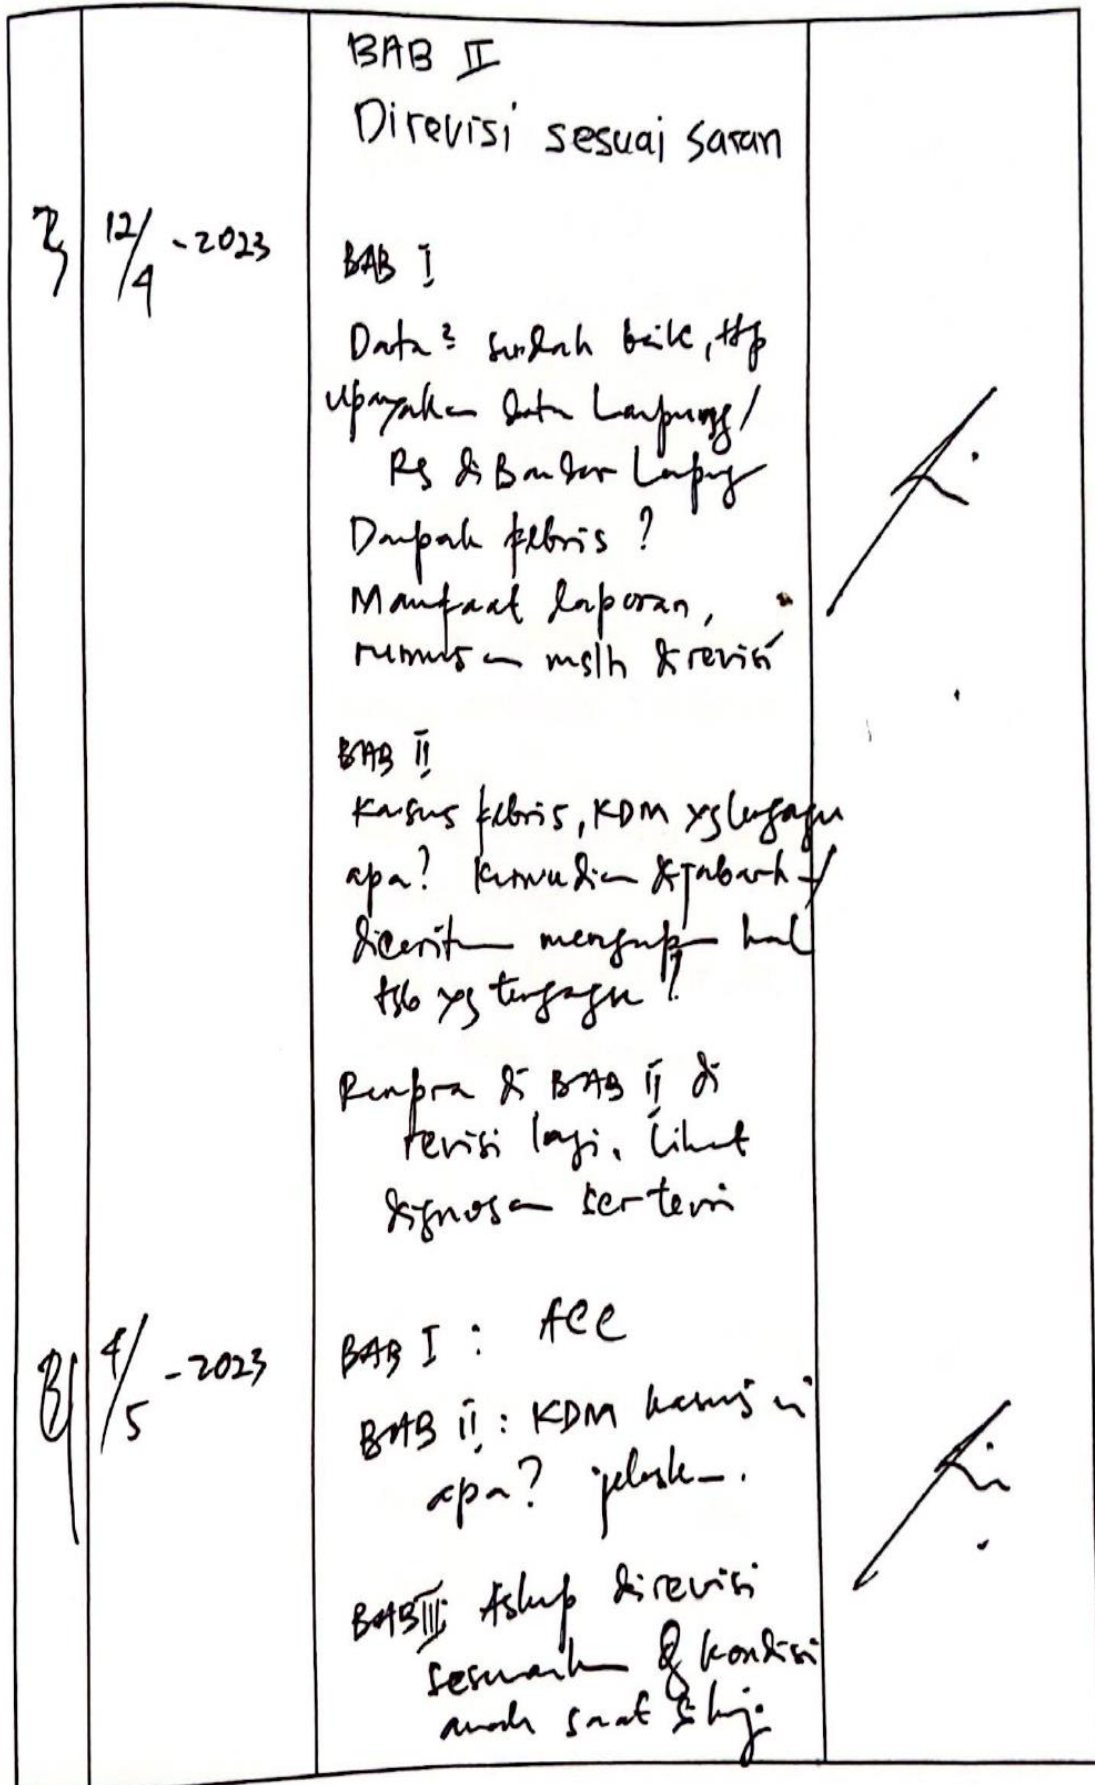 BAB II
Direvisi sesuai saran
12/4 - 2023
BAB I
Data² sudah baik, ttp
upayakan data Lampung/
RS di Bandar Lampung
Dampak febris ?
Manfaat laporan,
rumusan mslh direvisi
BAB II
Kasus febris, KDM yg terganggu
apa? Kemudian dijabarkan/
diceritakan mengapa hal
tsb yg terganggu?
Renpra di BAB II di
revisi lagi. Lihat
dignosan
4/5 - 2023
BAB I : Acc
BAB II : KDM kasus ini
apa? jelaskan.
BAB III: Askep direvisi
sesuaikan dg kondisi
anak saat